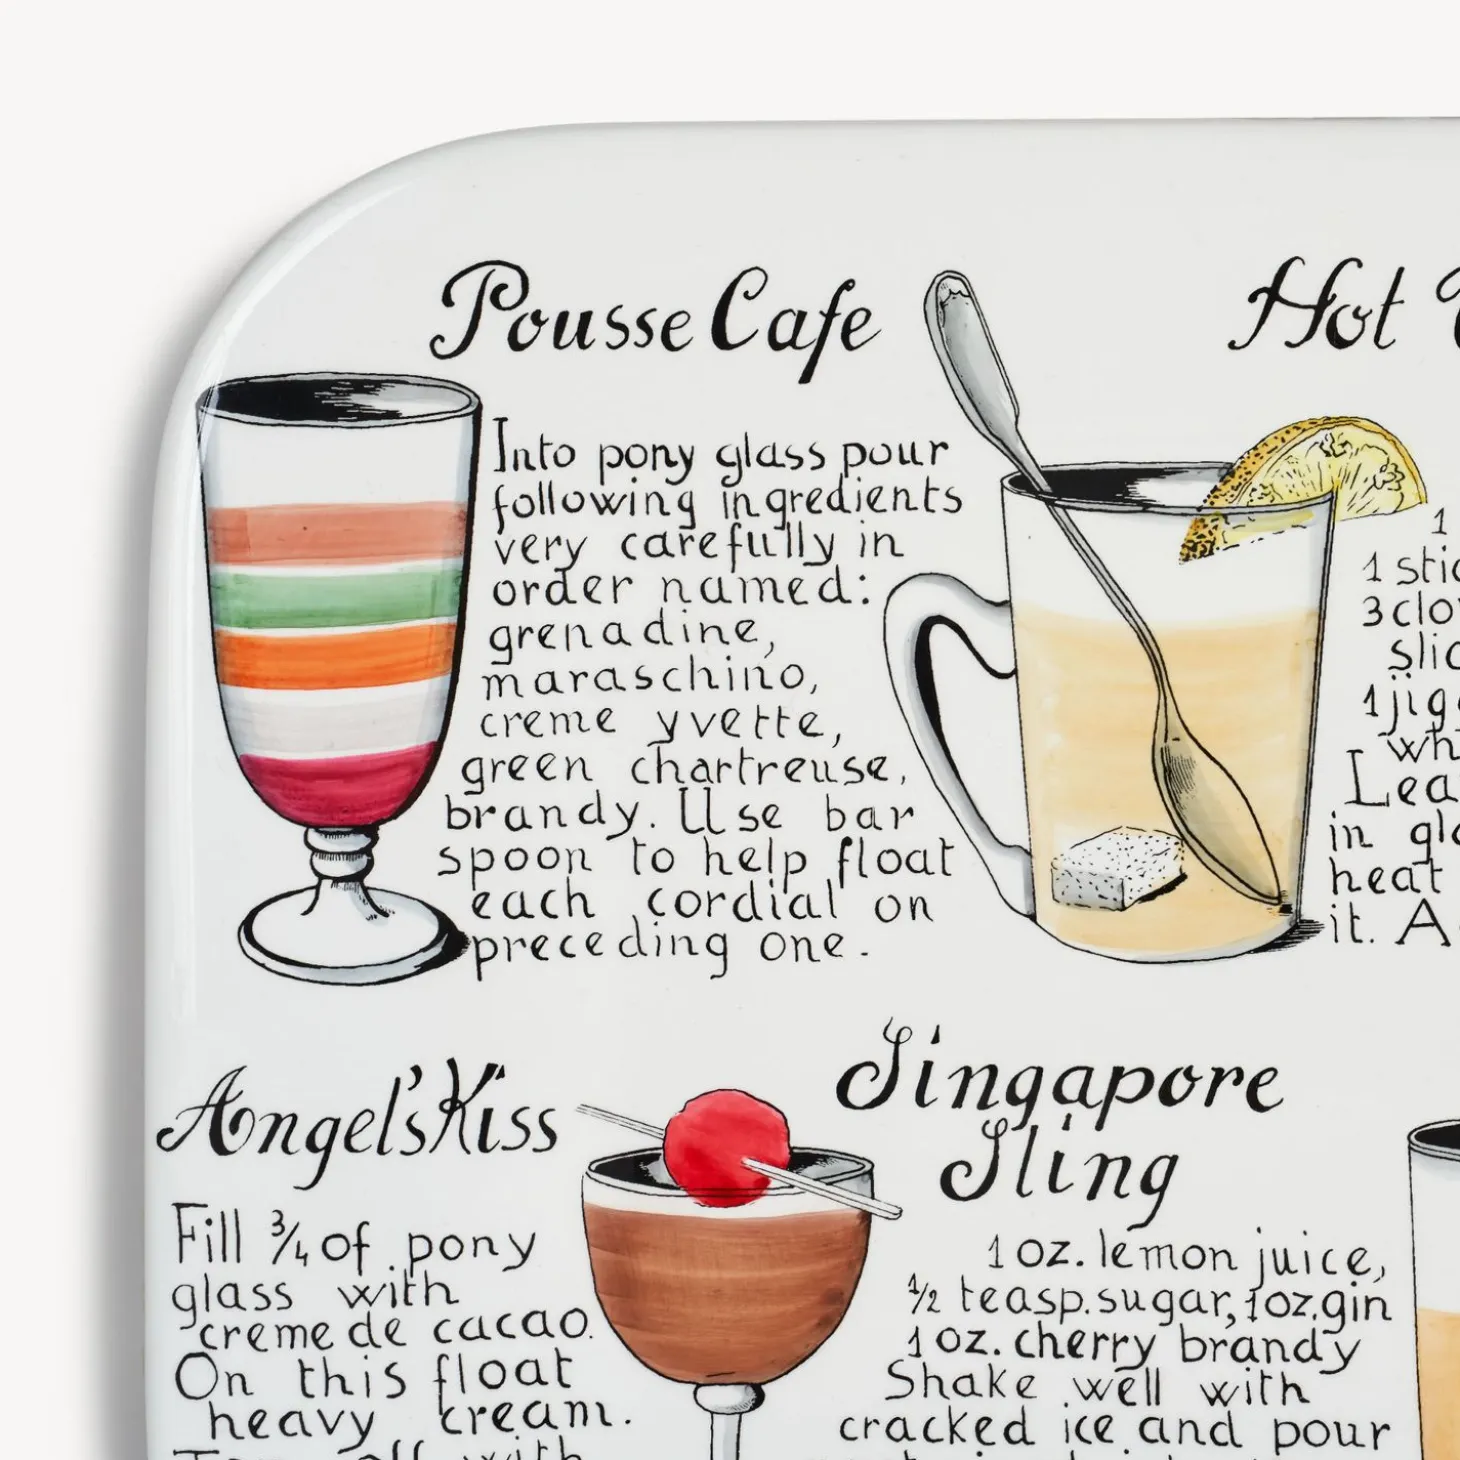 Pousse Cafe
Into pony glass pour
following ingredients
very carefully in
order named:
grenadine,
maraschino,
creme yvette,
green chartreuse,
brandy. Use bar
spoon to help float
each cordial on
preceding one.
Hot
1
1 stic
3 clov
slic
1 jigg
wh
Lea
in gla
heat
it. A
Angel's Kiss
Fill 3/4 of pony
glass with
creme de cacao.
On this float
heavy cream.
Top off with
Singapore
Sling
1 oz. lemon juice,
1/2 teasp. sugar, 1 oz. gin
1 oz. cherry brandy
Shake well with
cracked ice and pour